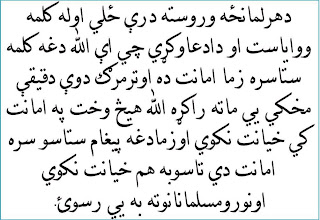 دهرلمانځه وروسته درې ځلې اوله کلمه
وواياست او دادعاوکړي چې اې الله دغه کلمه
ستاسره زما امانت ده اوترمرګ دوې دقيقې
مخکې يې ماته راکړه الله هيڅ وخت په امانت
کې خيانت نکوي اوزمادغه پيغام ستاسو سره
امانت دې تاسوبه هم خيانت نکوې
اونورومسلمانانوته به يې رسوئ.